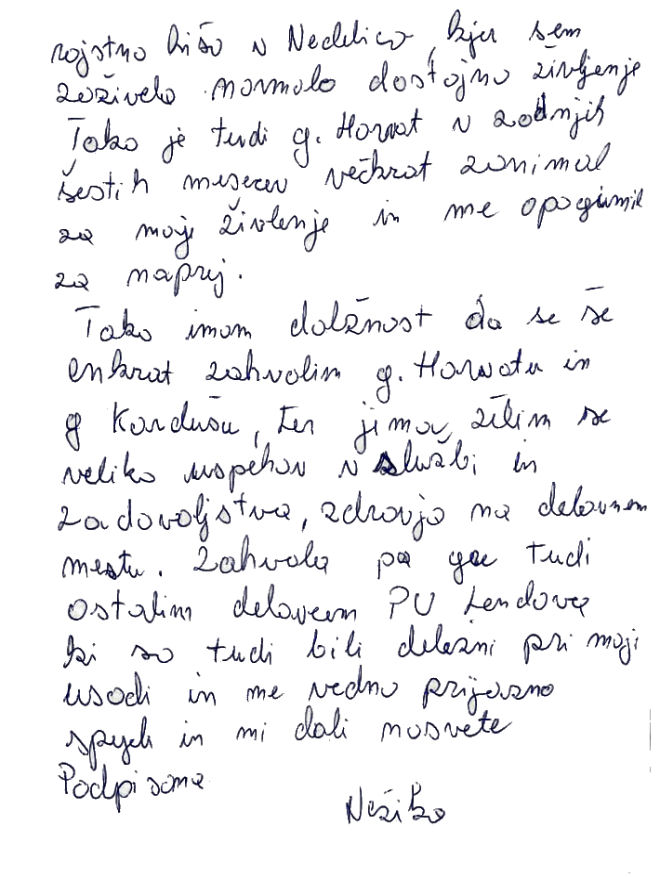 rojstno hišo v Nedelico, kjer sem
zaživela normalo dostojno življenje
Tako je tudi g. Horvat v zadnjih
šestih mesecev večkrat zanimal
za moje živlenje in me opogumil
za naprej.
Tako imam dolžnost da se še
enkrat zahvalim g. Horvatu in
g Kardušu, ter jima, žilim še
veliko uspehov v službi in
zadovoljstva, zdravja na delovnem
mestu. Zahvala pa gre tudi
ostalim delavcem PU Lendava
ki so tudi bili deležni pri moji
usodi in me vedno prijazno
in mi dali nasvete
Podpisana
Nežika